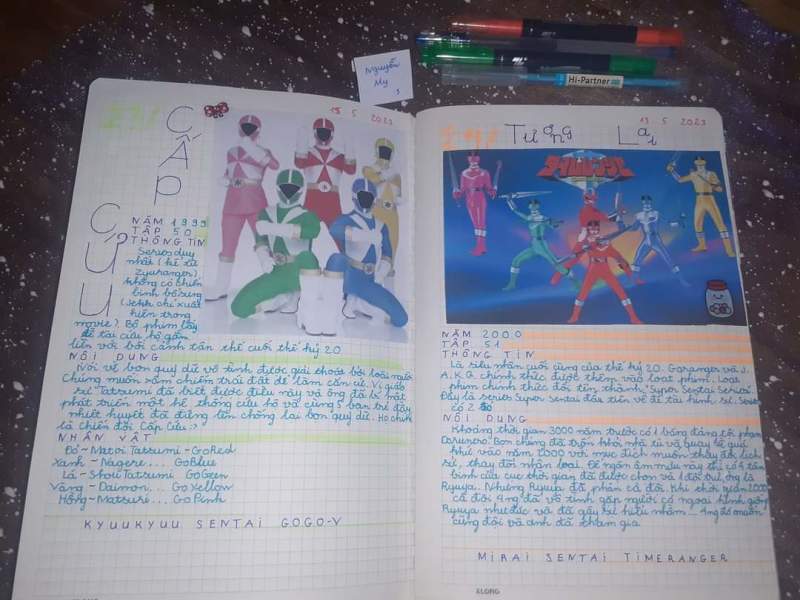 Nguyễn
My
Hi-Partner
15. 5 2023
CẤP
CỨU
NĂM 1999
TẬP 50
THÔNG TIN
Series duy
nhất (kể từ
Zyuranger)
không có chiến
binh bổ sung
hiện trong
movie). Bộ phim lấy
đề tài cứu hộ gắn
liền với bối cảnh tận thế cuối thế kỷ 20
NỘI DUNG
Nói về bọn quỷ dữ vô tình được giải thoát bởi loài người
Chúng muốn xâm chiếm trái đất để làm căn cứ. Vị giáo
sư Tatsumi đã biết được điều này và ông đã bí mật
phát triển một hệ thống cứu hộ và cùng 5 bạn trẻ đầy
nhiệt huyết đã đứng lên chống lại bọn quỷ dữ. Họ chính
là chiến đội Cấp Cứu
NHÂN VẬT
Đỏ - Matoi Tatsumi - GoRed
Xanh - Nagere... GoBlue
Lá - Shou Tatsumi GoGreen
Vàng - Daimon... GoYellow
Hồng - Matsuri... GoPink
KYUUKYUU SENTAI GOGO-V
19. 5 2023
Tương Lai
タイムレンジャー
NĂM 2000
TẬP 51
THÔNG TIN
Là siêu nhân cuối cùng của thế kỷ 20. Goranger và J.
A.K.Q chính thức được thêm vào loạt phim. Loạt
phim chính thức đổi tên thành "Super Sentai Series"
Đây là series Super Sentai đầu tiên về đề tài
có 2
NỘI DUNG
Khoảng thời gian 3000 năm trước có 1 băng đảng tội phạm
Bọn chúng đã trốn khỏi nhà tù và quay về quá
khứ vào năm 2000 với mục đích muốn thay đổi lịch
sử, thay đổi nhân loại. Để ngăn âm mưu này thì có 4 tân
binh của cục thời gian đã được chọn và 1 đội trưởng là
Ryuya. Nhưng Ryuya đã phản cả đội. Khi tới năm 2000
cả đội 4ng đã vô tình gặp người có ngoại hình giống
Ryuya như đúc và đã gây sự hiểu nhầm... 4ng đó muốn
cùng đội và anh đã tham gia
MIRAI SENTAI TIMERANGER
KLONG
KLONG